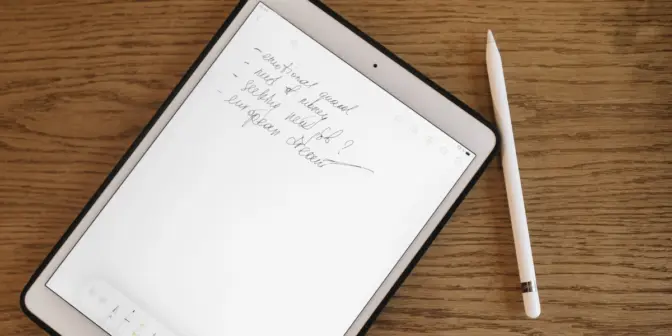 - emotional guard
- need of money
- seeking new job?
- european dream